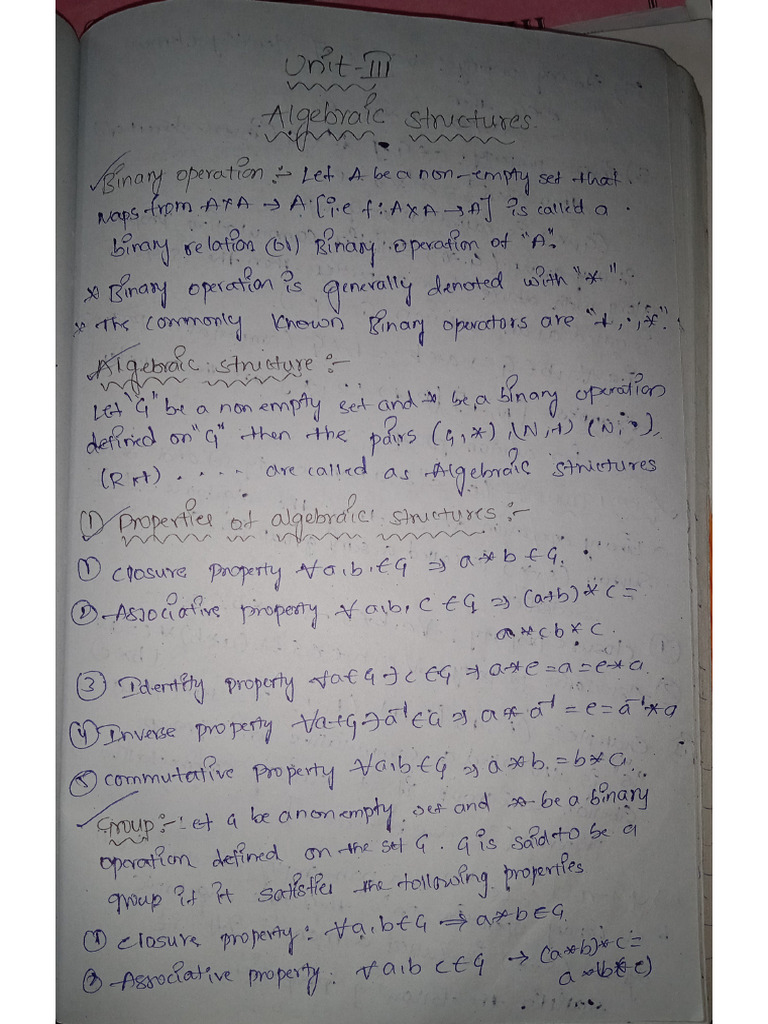 Unit-III
Algebraic structures
Binary operation :- Let A be a non-empty set that
Maps from A*A → A [i.e f: A×A → A] is called a
binary relation (or) Binary operation of "A".
* Binary operation is generally denoted with "*"
* The commonly known Binary operators are "+,·,*"
Algebraic structure :-
Let "G" be a non empty set and * be a binary operation
defined on "G" then the pairs (G,*) (N,+) (N,·),
(R,+) . . . . are called as Algebraic structures
① Properties of algebraic structures :-
① closure property ∀a,b,∈G ⇒ a*b∈G.
② Associative property ∀ a,b,c∈G ⇒ (a*b)*c =
a*cb*c.
③ Identity property ∀a∈G ∃ e∈G ⇒ a*e=a=e*a
④ Inverse property ∀a∈G ∃ a⁻¹∈G ⇒ a*a⁻¹=e=a⁻¹*a
⑤ commutative property ∀a,b∈G ⇒ a*b=b*a
Group :- Let G be a non empty set and * be a binary
operation defined on the set G. G is said to be a
group if it satisfies the following properties
① closure property: ∀a,b∈G ⇒ a*b∈G
② Associative property: ∀a,b c∈G → (a*b)*c=
a*(b*c)